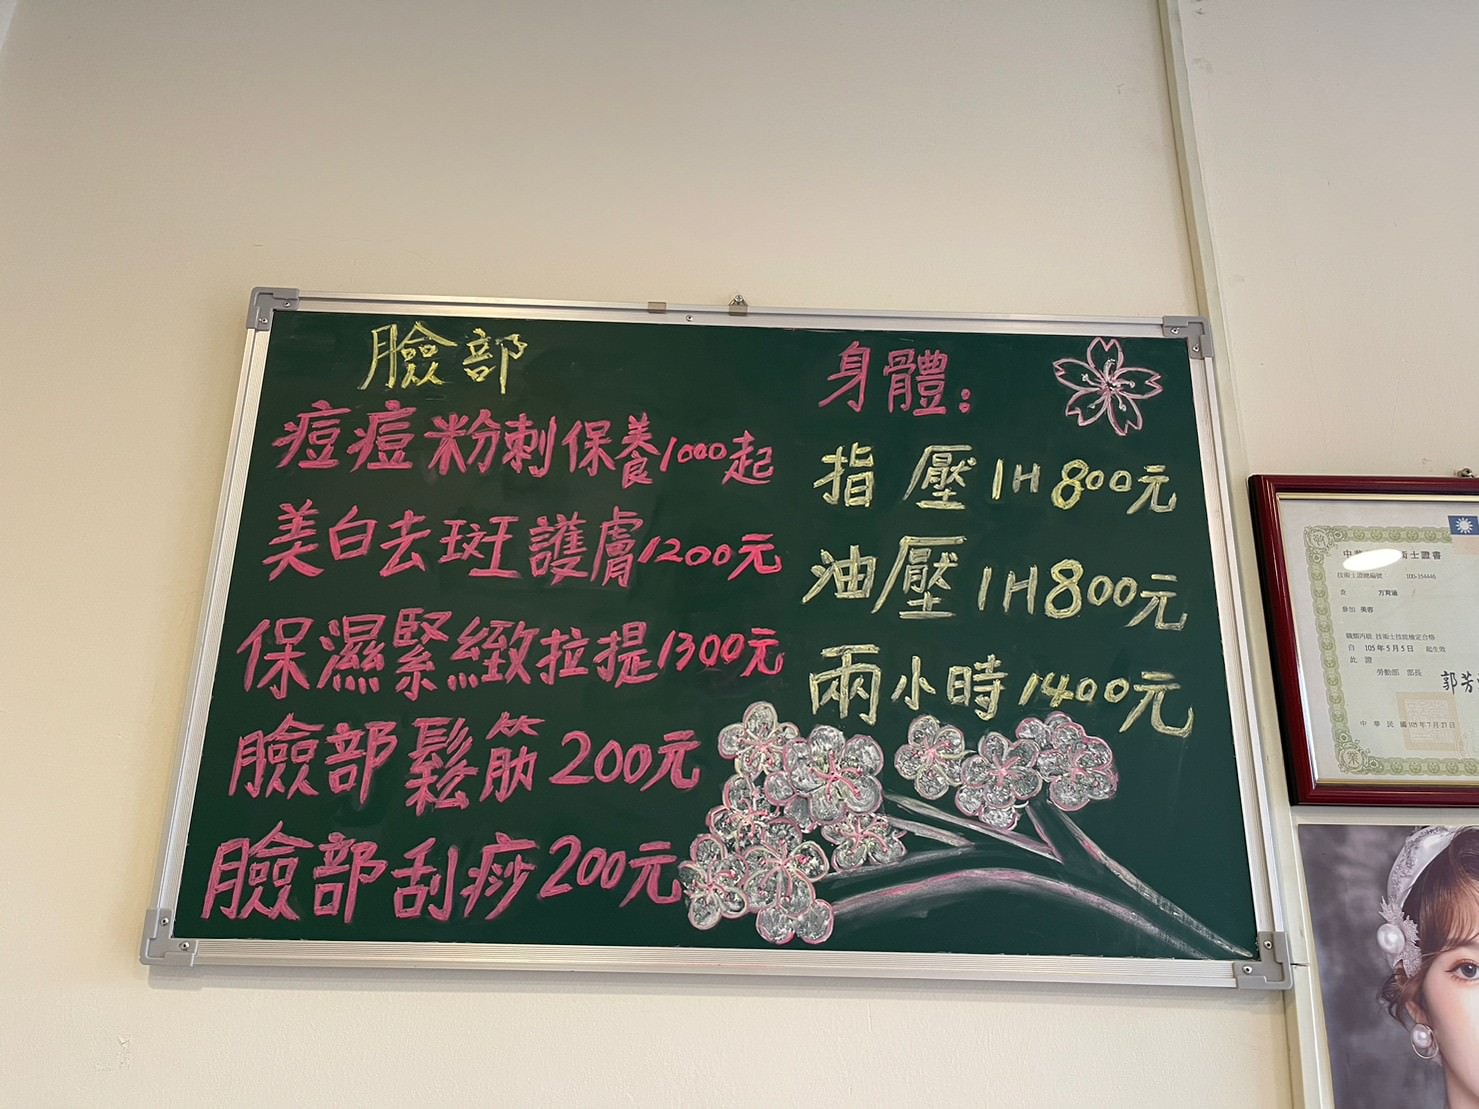 臉部
痘痘粉刺保養1000起
美白去斑護膚1200元
保濕緊緻拉提1300元
臉部鬆筋200元
臉部刮痧200元
身體:
指壓1H800元
油壓1H800元
兩小時1400元
技術士證總編號 100-354446
參加 美容
職類丙級 技術士技能檢定合格
自 105年5月5日 起生效
此證
勞動部 部長
郭芳
中華民國105年7月27日